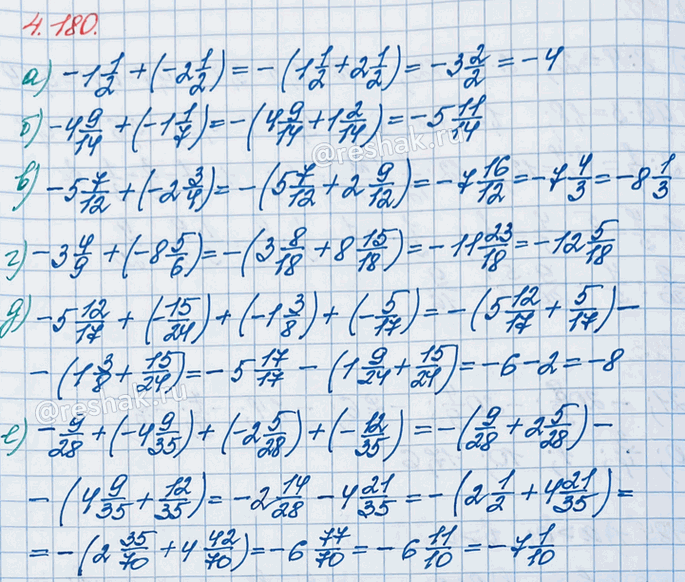 4.180.
а) -1 1/2 + (-2 1/2) = -(1 1/2 + 2 1/2) = -3 2/2 = -4
б) -4 9/14 + (-1 1/7) = -(4 9/14 + 1 2/14) = -5 11/14
@reshak.ru
в) -5 7/12 + (-2 3/4) = -(5 7/12 + 2 9/12) = -7 16/12 = -7 4/3 = -8 1/3
г) -3 4/9 + (-8 5/6) = -(3 8/18 + 8 15/18) = -11 23/18 = -12 5/18
д) -5 12/17 + (-15/24) + (-1 3/8) + (-5/17) = -(5 12/17 + 5/17) -
-(1 3/8 + 15/24) = -5 17/17 - (1 9/24 + 15/24) = -6 - 2 = -8
@reshak.ru
е) -9/28 + (-4 9/35) + (-2 5/28) + (-12/35) = -(9/28 + 2 5/28) -
-(4 9/35 + 12/35) = -2 14/28 - 4 21/35 = -(2 1/2 + 4 21/35) =
= -(2 35/70 + 4 42/70) = -6 77/70 = -6 11/10 = -7 1/10